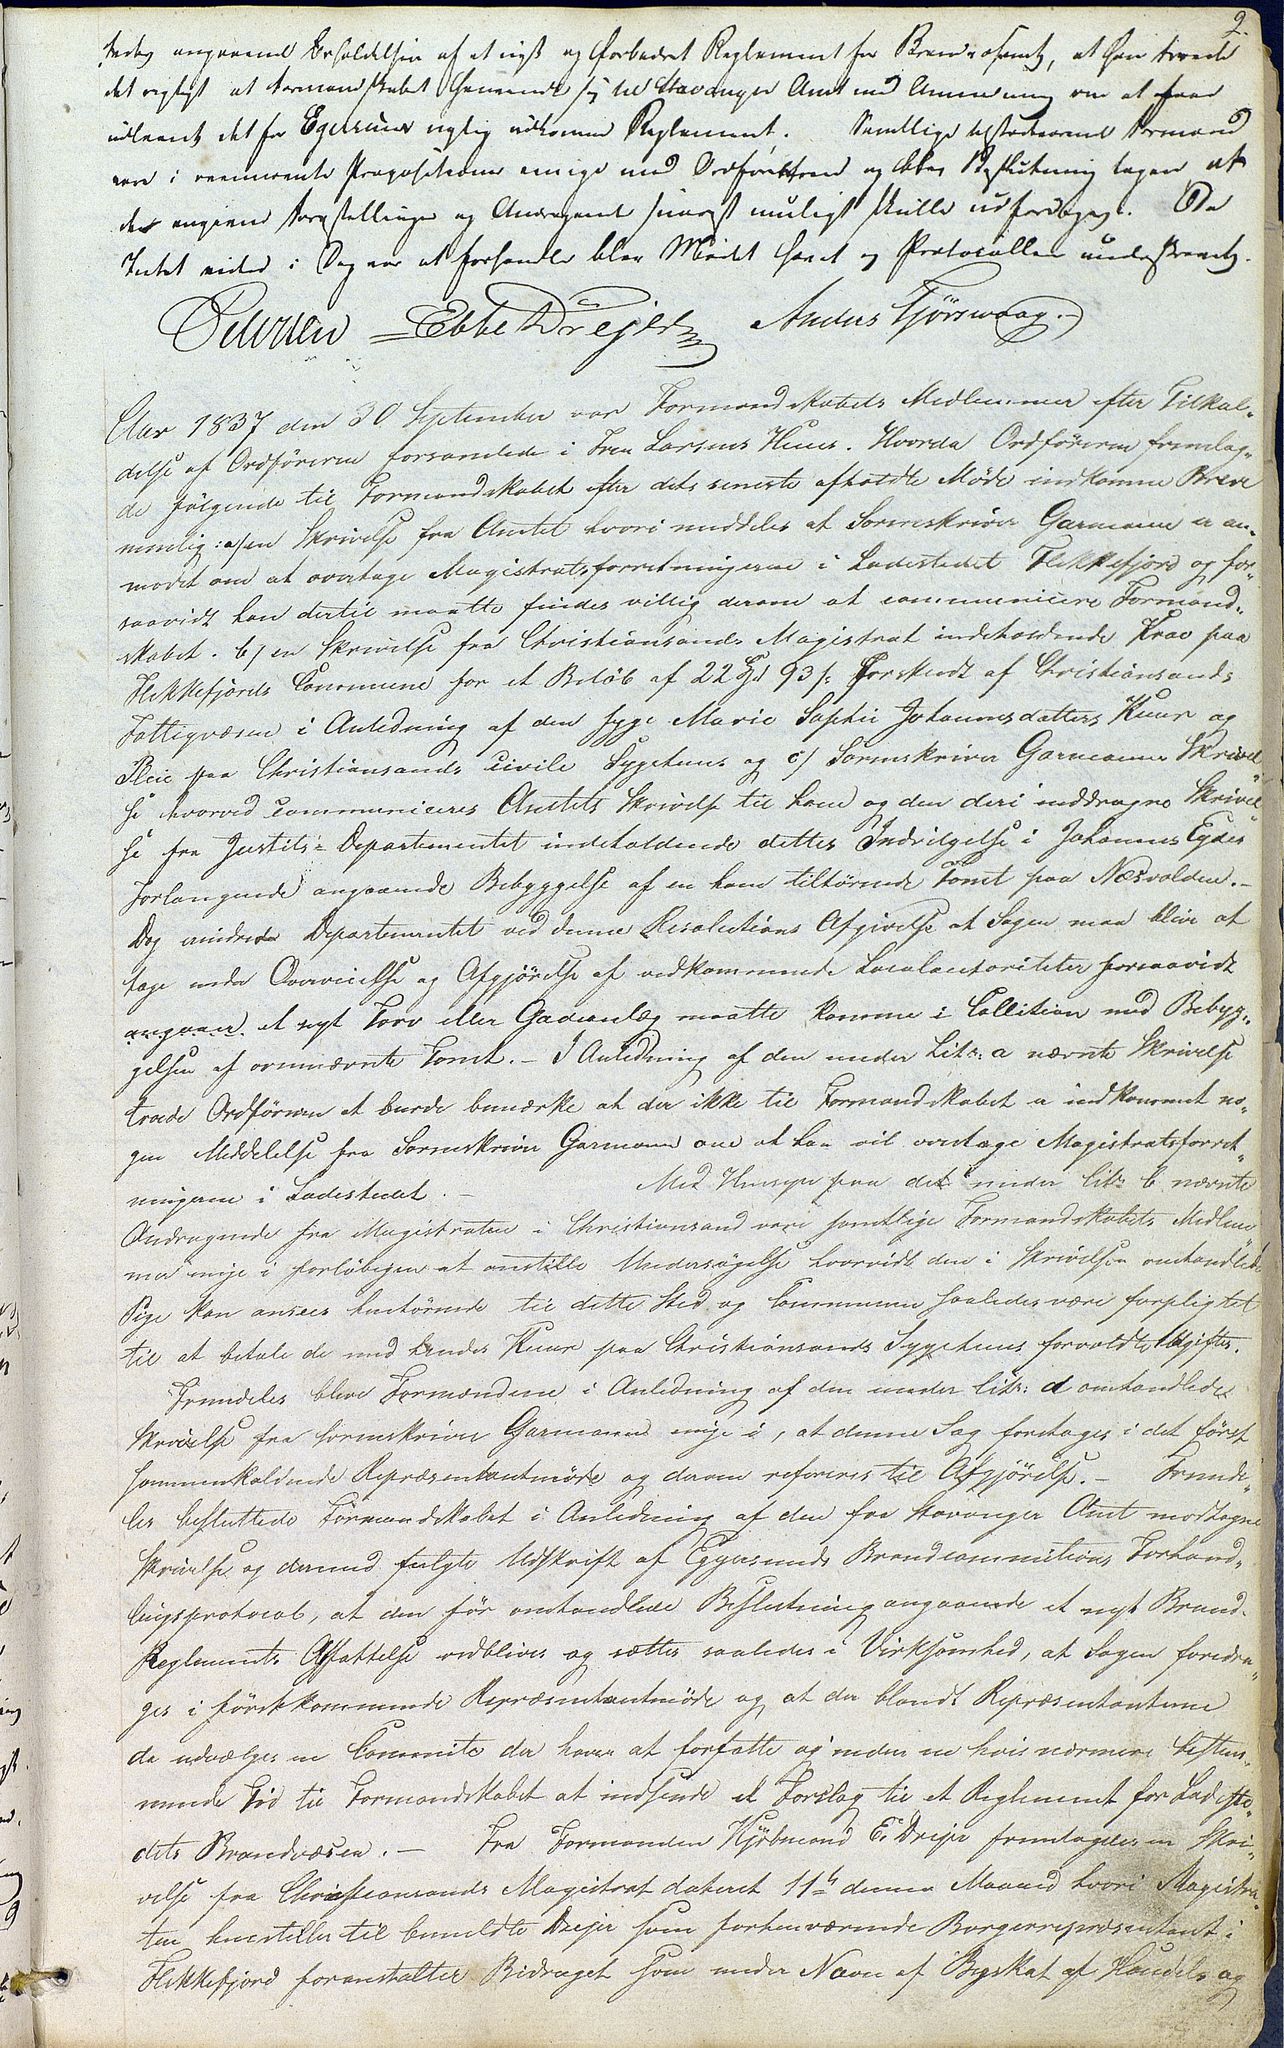 2.
angaaende Erholdelsen af et nyt og forbedret Reglement for Brandvæsenet, at han troede
det rigtigt at Formandskabet henvendte sig til Stavanger Amt med Anmodning om at faae
udlaant det for Egersund nylig udkomne Reglement. Samtlige tilstedeværende Formænd
vare i ovennævnte Propositioner enige med Ordføreren og blev Beslutning tagen at
de angivne Forestillinger og Andragende snarest muligt skulle udfærdiges. Da
Intet videre i Dag var at forhandle blev Mødet hævet og Protocollen underskrevet.
Petersen Ebbe Drejer Anders Tjörswaag.
Aar 1837 den 30 September var Formandskabets Medlemmer efter Tilkal-
delse af Ordföreren forsamlede i Larsens Huus. Hvorda Ordföreren fremlag-
de fölgende til Formandskabet efter dets seneste afholdte Möde indkomne Breve
nemlig: a/ en Skrivelse fra Amtet hvori meddeles at Sorenskriver Garmann er an-
modet om at overtage Magistratsforretningerne i Ladestedet Flekkefjord og for-
saavidt han dertil maatte findes villig derom at communicere Formand-
skabet. b/ en Skrivelse fra Christiansands Magistrat indeholdende Krav paa
Flekkefjords Commune for et Belöb af 22 Spd 93 s. forskudt af Christiansands
Fattigvæsen i Anledning af den syge Marie Sophie Johannesdatters Kuur og
Pleie paa Christiansands civile Sygehuus og c/ Sorenskriver Garmanns Skrivel-
se hvorved communiceres Amtets Skrivelse til ham og den deri inddragne Skrivel-
se fra Justits-Departementet indeholdende dettes Indvilgelse i Johannes Eydes
Forlangende angaaende Bebyggelse af en ham tilhörende Tomt paa Næsvolden.-
Dog Departementet ved denne Resolutions Afgivelse at Sagen maa blive at
tage under Overveielse og Afgjörelse af vedkommende Localautoriteter forsaavidt
angaaer et nyt Torv eller Gadeanlæg maatte komme i Collition med Bebyg-
gelsen af ovennævnte Tomt.- I Anledning af den under Litr: a nævnte Skrivelse
troede Ordföreren at burde bemærke at der ikke til Formandskabet er indkommet no-
gen Meddelelse fra Sorenskriver Garmann om at han vil overtage Magistratsforret-
ningerne i Ladestedet.- Med Hensyn paa det under litr. b nævnte
Andragende fra Magistraten i Christiansand vare samtlige Formandskabets Medlem-
mer enige i forlöbigen at anstille Undersögelse hvorvidt den i Skrivelsen omhandlede
Pige kan ansees henhörende til dette Sted og Communen saaledes være forpligtet
til at betale de med hendes Kuur paa Christiansands Sygehuus forvoldte Udgifter.
Fremdeles bleve Formændene i Anledning af den under litr: d omhandlede
Skrivelse fra Sorenskriver Garmann enige i, at denne Sag foretages i det först
sammenkaldende Repræsentantmöde og derom refereres til Afgjörelse.- Fremde-
les besluttede Formandskabet i Anledning af den fra Stavanger Amt modtagne
Skrivelse og dermed fulgte Udskrift af Eggersunds Brandcommitions Forhand-
lingsprotocol, at den för omhandlede Beslutning angaaende et nyt Brand-
Reglements Affattelse vedbliver og sættes saaledes i Virksomhed, at Sagen foredra-
ges i förstkommende Repræsentantmöde og at der blandt Repræsentanterne
da udvælges en Commite der haver at forfatte og inden en hvis nærmere bestem-
mende Tid til Formandskabet at indsende et Forslag til et Reglement for Ladeste-
dets Brandvæsen.- Fra Formanden Kjöbmand E. Drejer fremlagdes en Skri-
velse fra Christiansands Magistrat dateret 11te denne Maaned hvori Magistra-
ten henstiller til bemeldte Drejer som forhenværende Borgerrepresentant i
Flekkefjord foranstalter Bidraget som under Navn af Byskat af Handels og